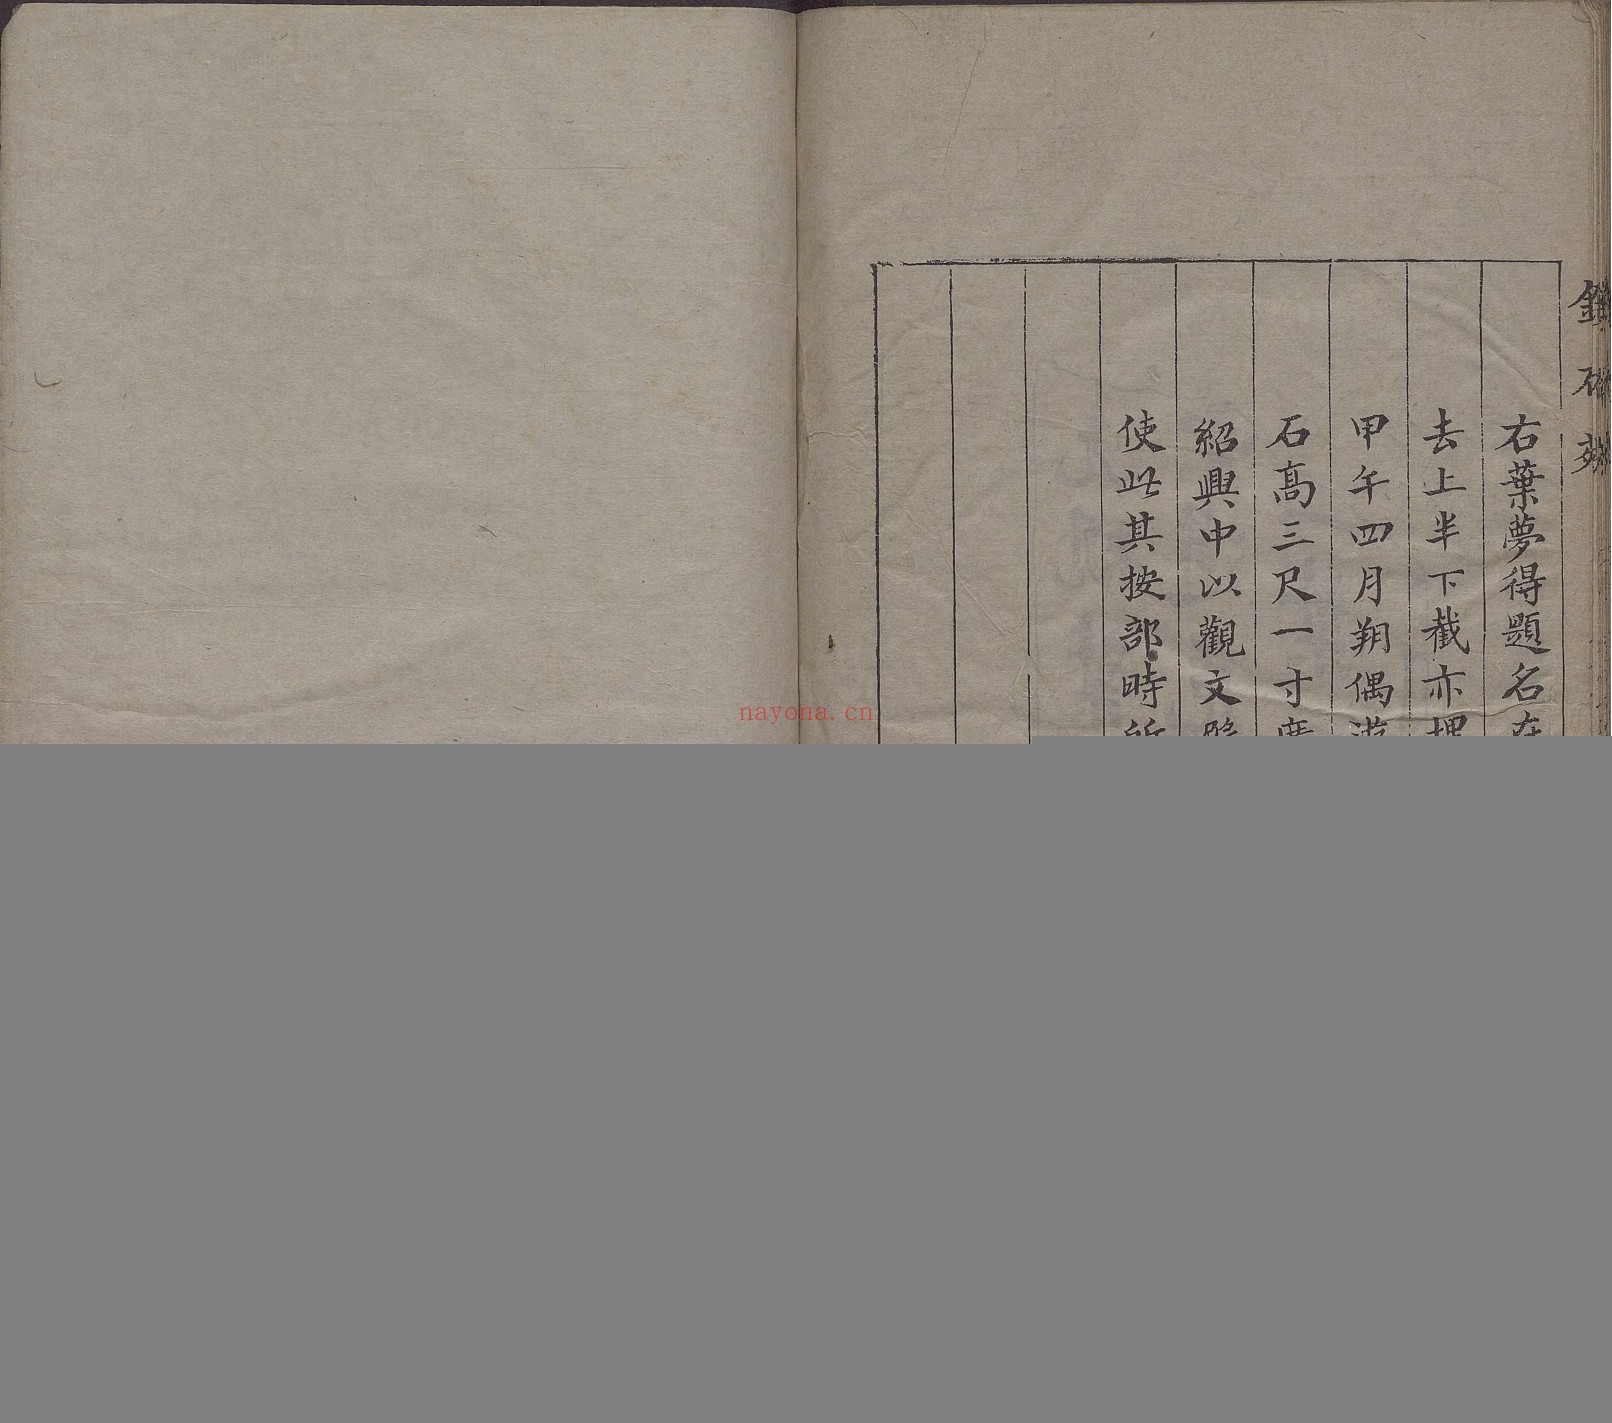 右葉夢得題名在
去上半下截亦埋
甲午四月朔偶游
石高三尺一寸廣
紹興中以觀文殿
使此其按部時所
nayona.cn